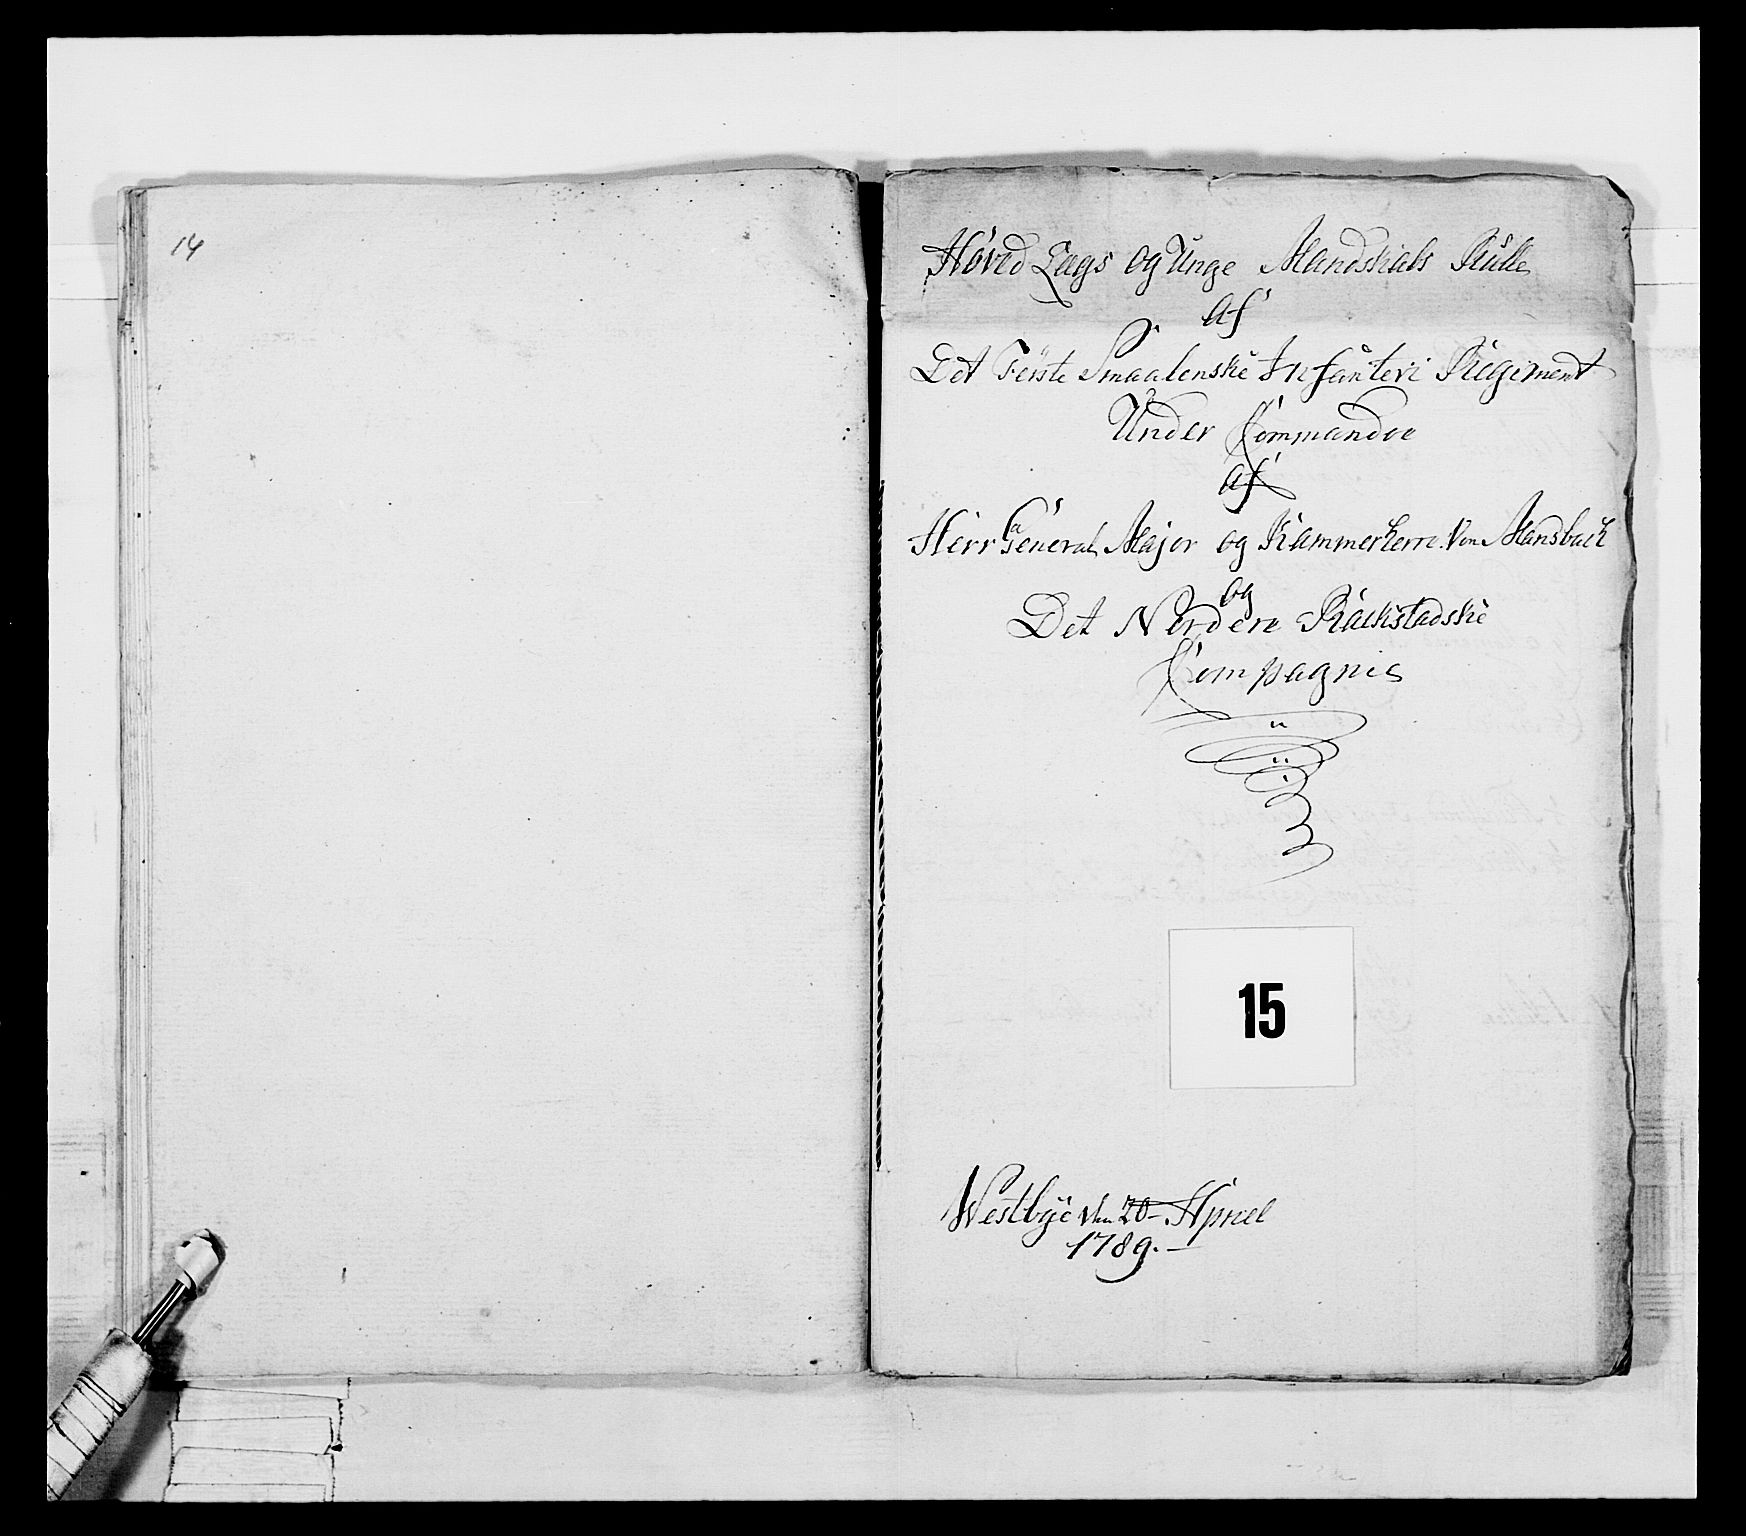 14
Hoved Lægs og Unge Mandskabs Rulle
af
Det Første Smaalenske Infanteri Regiment
Under Commandoe
af
Herr General Major og Kammerherre Von Mansbach
og
Det Nordere Rackstadske
Compagnie
15
Westbye den 20 Apriel
1789.